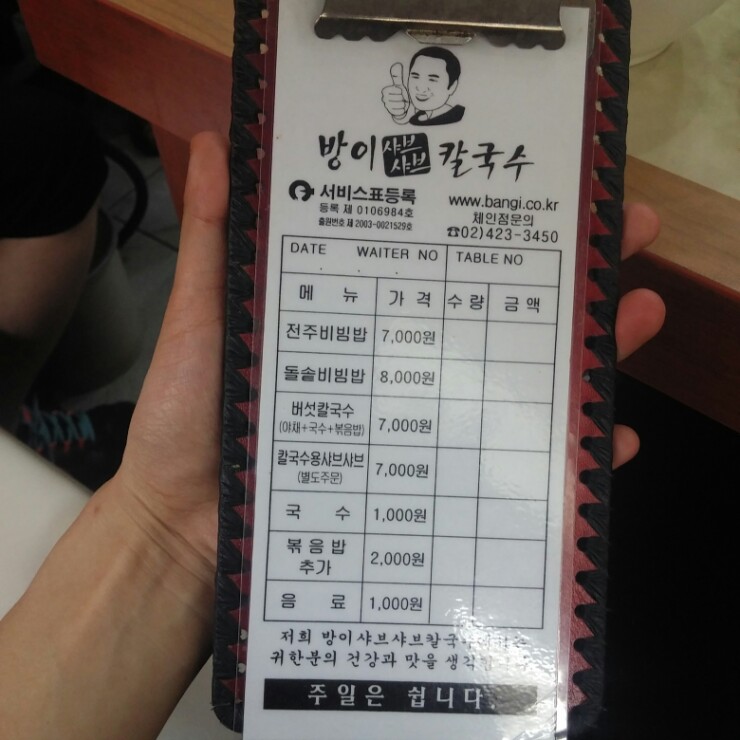 방이 샤브샤브 칼국수
서비스표등록
등록 제 0106984호
출원번호 제 2003-0021529호
www.bangi.co.kr
체인점문의
☎02)423-3450
DATE WAITER NO TABLE NO
메 뉴 가 격 수 량 금 액
전주비빔밥 7,000원
돌솥비빔밥 8,000원
버섯칼국수
(야채+국수+볶음밥) 7,000원
칼국수용샤브샤브
(별도주문) 7,000원
국 수 1,000원
볶 음 밥
추가 2,000원
음 료 1,000원
저희 방이샤브샤브칼국
귀한분의 건강과 맛을
주일은 쉽니다